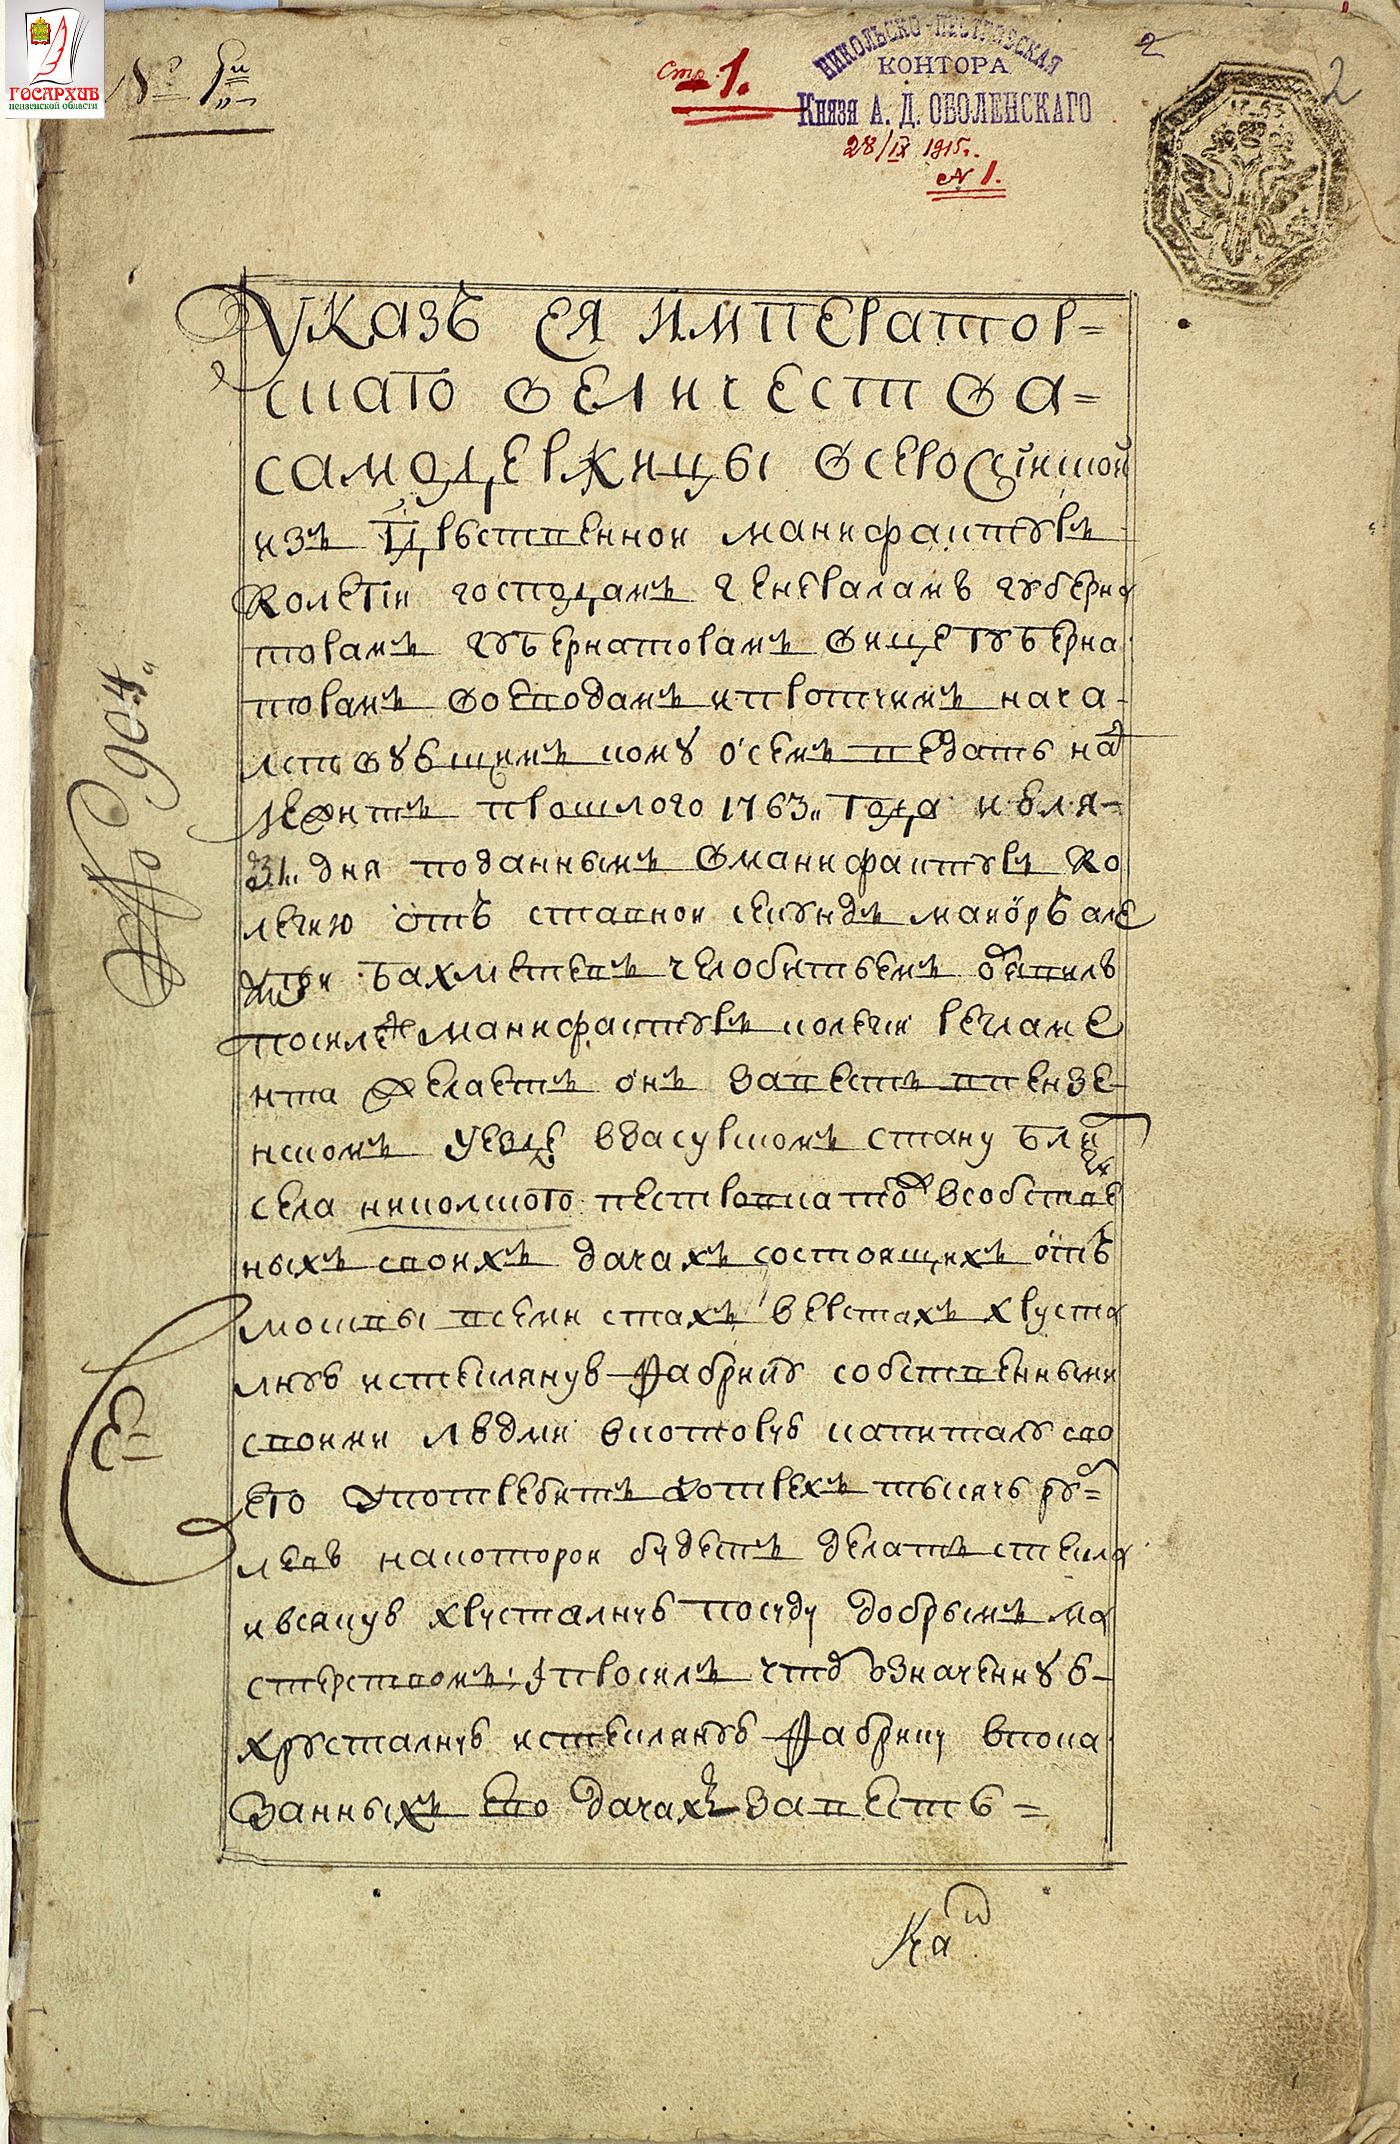 ГОСАРХИВ
пензенской области
Стр. 1.
НИКОЛЬСКО-ПЕСТРОВСКАЯ
КОНТОРА
Князя А. Д. ОБОЛЕНСКАГО
28/IX 1915 г.
№ 1.
2
2
1763
№ 904
Указъ ея император=
скаго величества=
самодержицы всеросийской
изъ Г дрьственной мануфактуръ
Колегіи господамъ генераламъ губерна
торамъ губернаторамъ вице губерна
торамъ воеводамъ и протчимъ нача
лствующимъ кому о семъ ведать на
лежитъ прошлого 1763 года июля
31 дня поданнымъ в мануфактуръ Ко
легию отъ ставной секундъ маиоръ але
ѯей бахметевъ челобитьемъ обявилъ
по силе мануфактуръ колегии регламе
нта желаетъ онъ завесть в пензе
нскомъ уезде в засурском стану бли
села николского пестровка тожъ в собстве
ныхъ своихъ дачахъ состоящихъ отъ
москвы в семи стахъ верстахъ хруста
лную и стекляную фабрику собственными
своими людми в которую капиталу сво
его употребитъ до трехъ тысячь ру=
левъ на которой будетъ делать стекла
и всякую хрусталную посуду добрымъ ма
стерствомъ; і просилъ чтоб означенную
хрусталную и стекляную фабрику в пока
занныхъ ево дачахъ завесть =